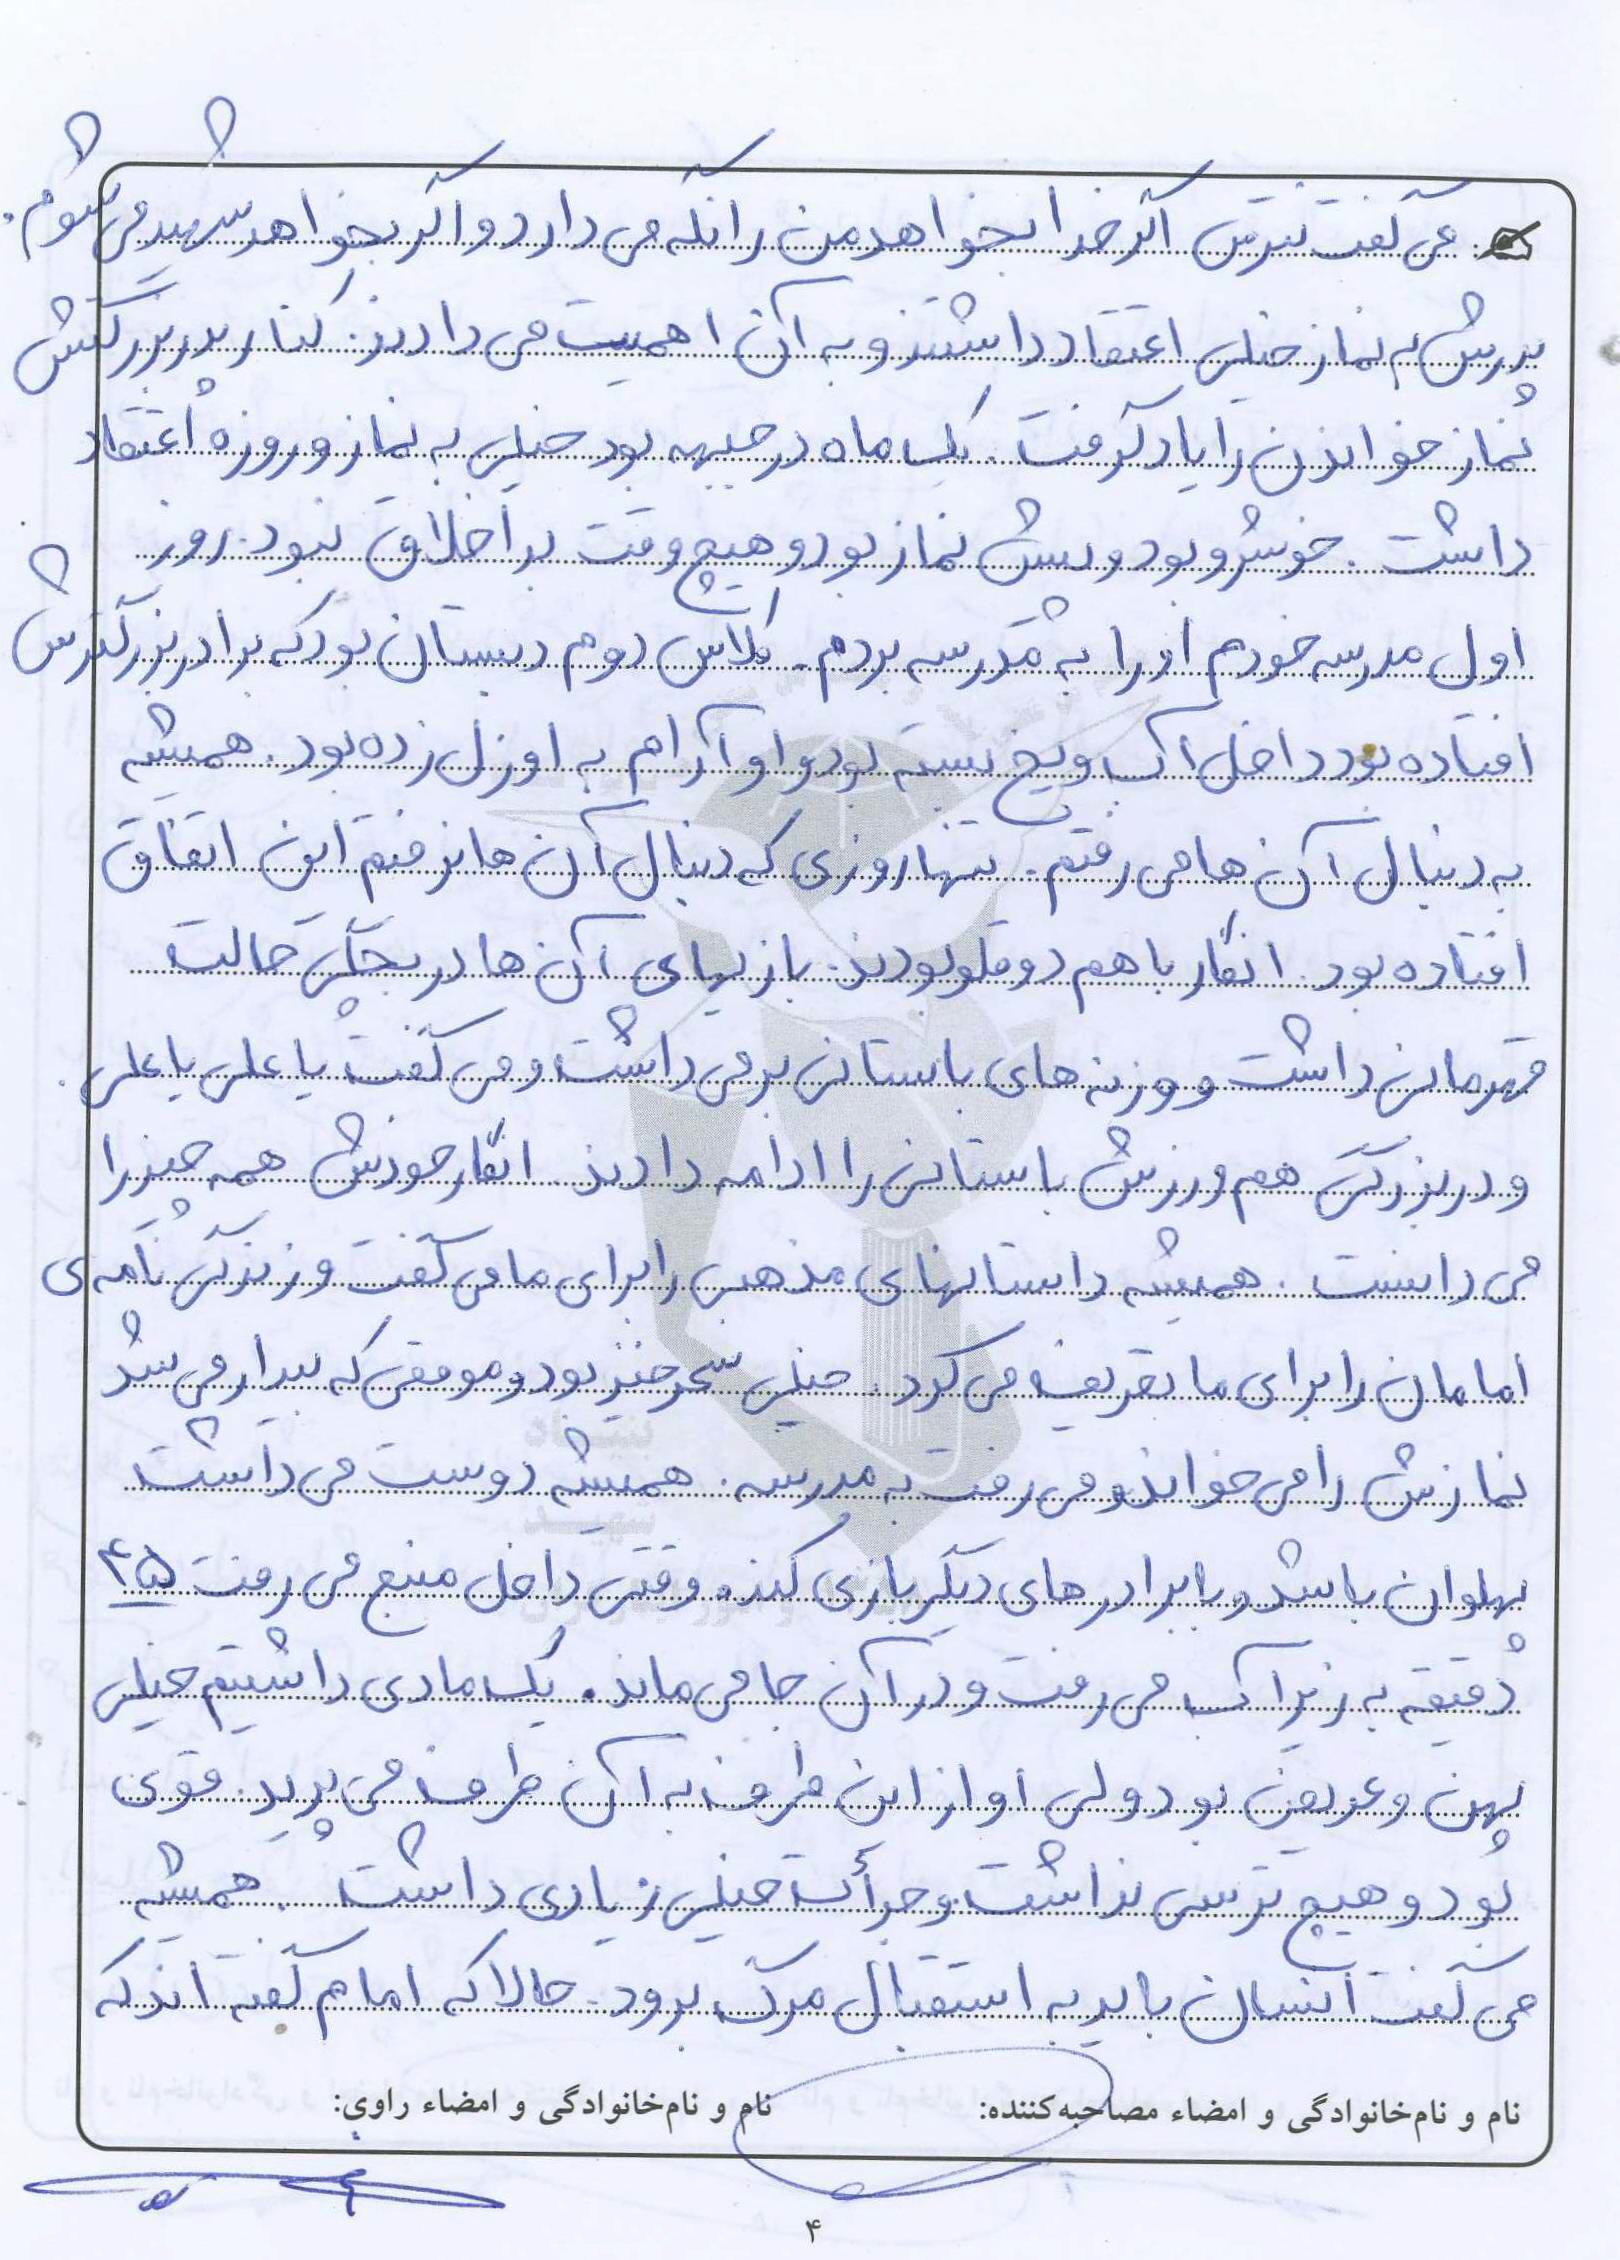 می گفت نترس اگر خدا بخواهد من را نگه می دارد و اگر بخواهد شهید می شوم.
پدرش به نماز خیلی اعتقاد داشتند و به آن اهمیت می دادند. کنار پدربزرگش
نماز خواندن را یاد گرفت. یک ماه در جبهه بود خیلی به نماز و روزه اعتقاد
داشت. خوشرو بود و پیش نماز بود و هیچ وقت بداخلاق نبود. روز
اول مدرسه خودم او را به مدرسه بردم. کلاس دوم دبستان بود که برادر بزرگترش
افتاده بود داخل آب و یخ بسته بود و او آرام به او زل زده بود. همیشه
به دنبال آن ها می رفتم. تنها روزی که دنبال آن ها نرفتم این اتفاق
افتاده بود. انگار با هم دوقلو بودند. بازیهای آن ها در بچگی حالت
قهرمانی داشت و وزنه های باستانی بر می داشت و می گفت یا علی یا علی.
و در بزرگی هم ورزش باستانی را ادامه دادند. انگار خودش همه چیز را
می دانست. همیشه داستانهای مذهبی را برای ما می گفت و زندگی نامه ی
امامان را برای ما تعریف می کرد. خیلی سحرخیز بود و موقعی که بیدار می شد
نمازش را می خواند و می رفت به مدرسه. همیشه دوست می داشت
پهلوان باشد و با برادرهای دیگر بازی کند. وقتی داخل منبع می رفت ۴۵
دقیقه به زیر آب می رفت و در آن جا می ماند. یک مادی داشتیم خیلی
پهن و عریض بود ولی او از این طرف به آن طرف می پرید. قوی
بود و هیچ ترسی نداشت و جرأت خیلی زیادی داشت. همیشه
می گفت انسان باید به استقبال مرگ برود. حالا که امام گفته اند که
نام و نام‌خانوادگی و امضاء مصاحبه‌کننده: نام و نام‌خانوادگی و امضاء راوی:
۴